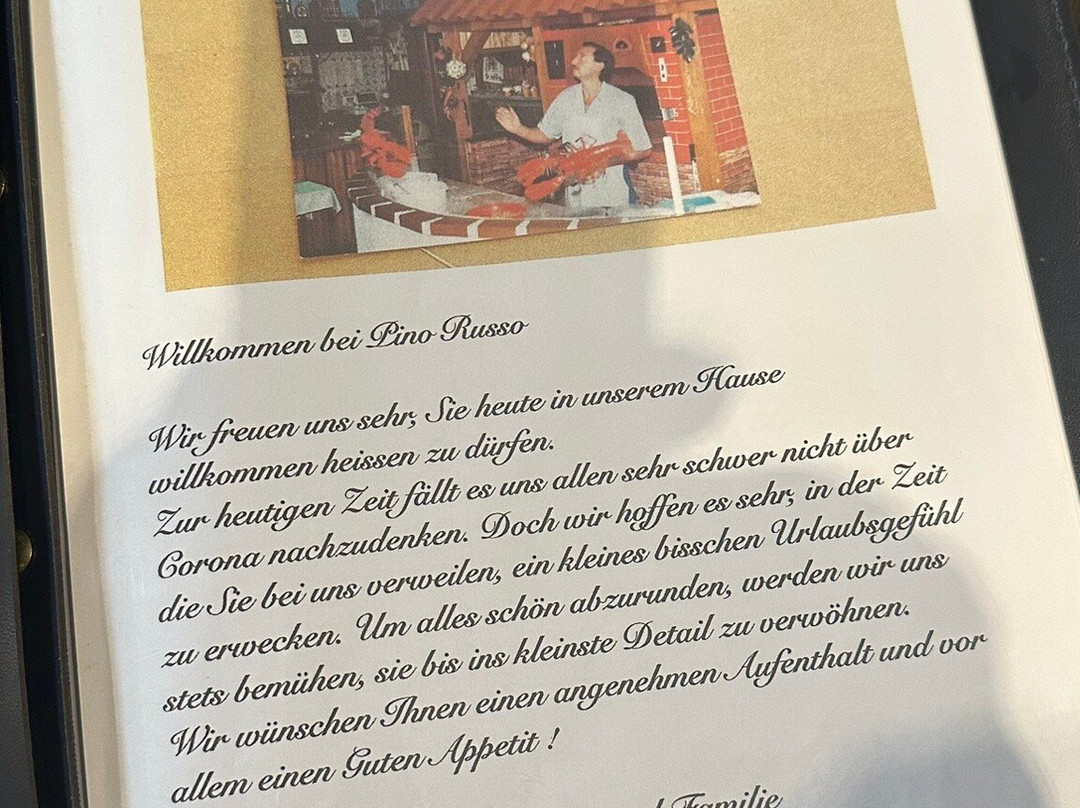 Willkommen bei Pino Russo
Wir freuen uns sehr, Sie heute in unserem Hause
willkommen heissen zu dürfen.
Zur heutigen Zeit fällt es uns allen sehr schwer nicht über
Corona nachzudenken. Doch wir hoffen es sehr, in der Zeit
die Sie bei uns verweilen, ein kleines bisschen Urlaubsgefühl
zu erwecken. Um alles schön abzurunden, werden wir uns
stets bemühen, sie bis ins kleinste Detail zu verwöhnen.
Wir wünschen Ihnen einen angenehmen Aufenthalt und vor
allem einen Guten Appetit !
Familie